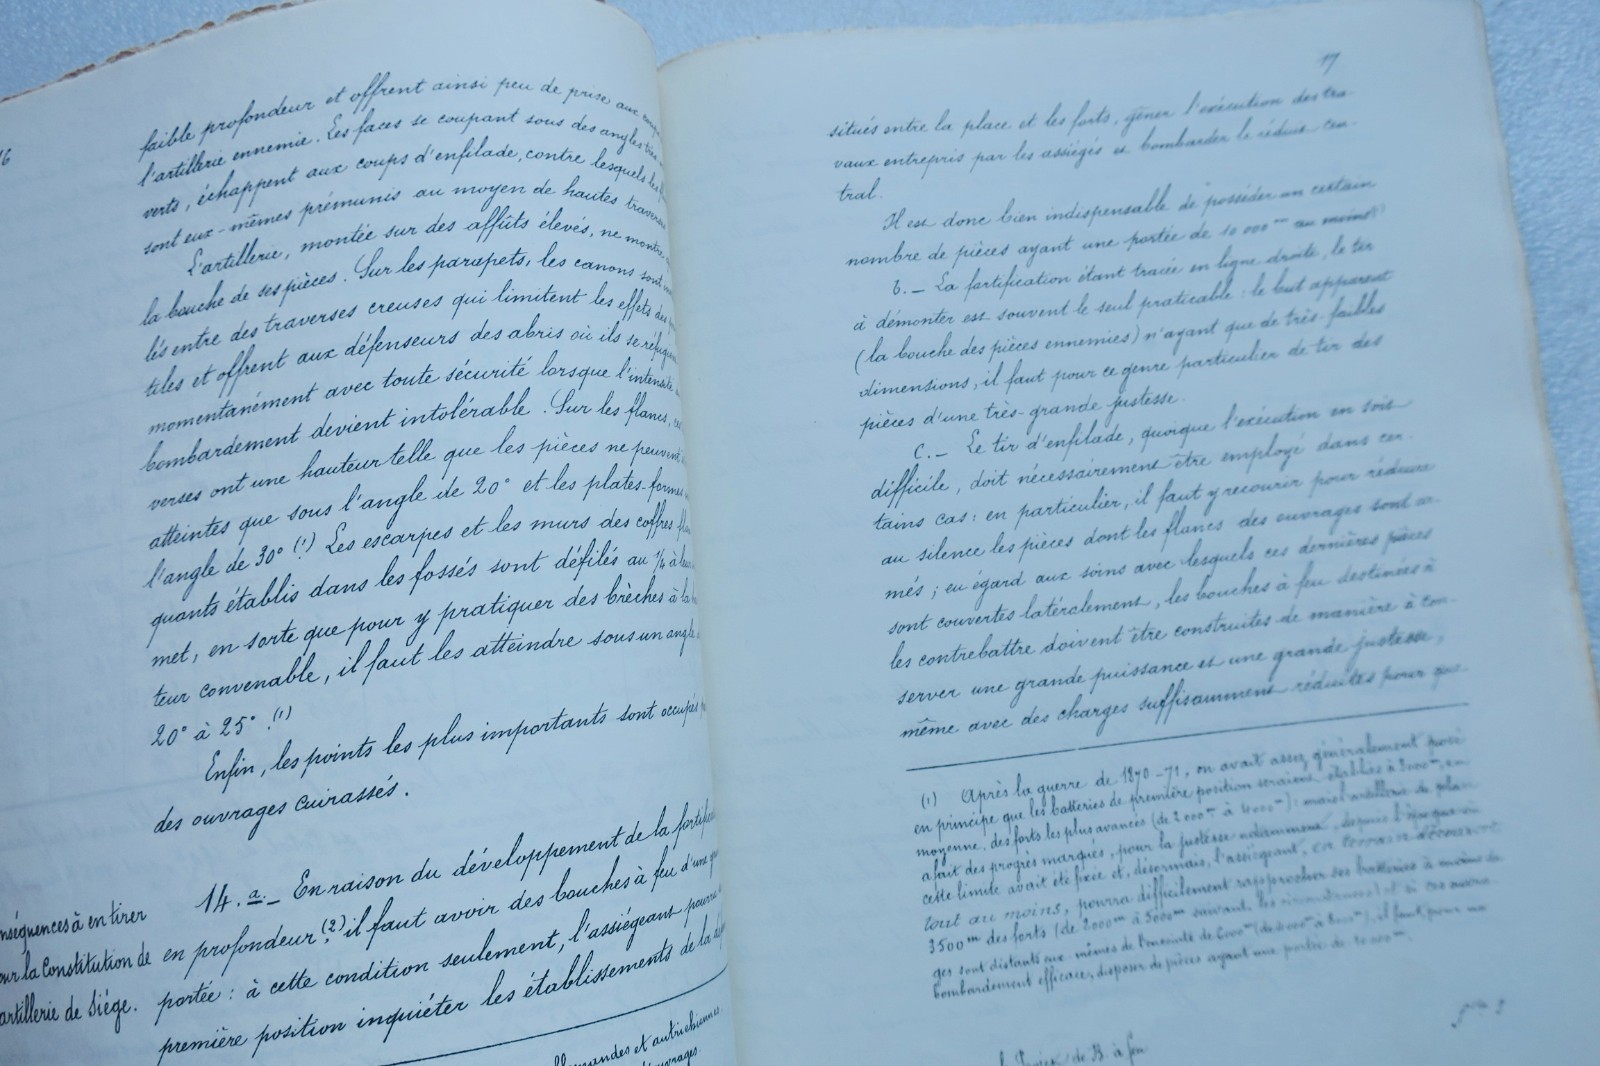 16
faible profondeur et offrent ainsi peu de prise aux coups
l'artillerie ennemie. Les faces se coupant sous des angles très
verts, échappent aux coups d'enfilade, contre lesquels les
sont eux-mêmes prémunis au moyen de hautes traverses
L'artillerie, montée sur des affûts élevés, ne montre
la bouche de ses pièces. Sur les parapets, les canons sont
lés entre des traverses creuses qui limitent les effets des
tiles et offrent aux défenseurs des abris où ils se réfugient
momentanément avec toute sécurité lorsque l'intensité
bombardement devient intolérable. Sur les flancs,
verses ont une hauteur telle que les pièces ne peuvent
atteintes que sous l'angle de 20° et les plates-formes
l'angle de 30° (1) Les escarpes et les murs des coffres
quants établis dans les fossés sont défilés au 1/4 à
met, en sorte que pour y pratiquer des brèches à la
teur convenable, il faut les atteindre sous un angle
20° à 25° (1)
Enfin, les points les plus importants sont occupés
des ouvrages cuirassés.
nséquences à en tirer
our la Constitution de
artillerie de Siége.
14. a. _ En raison du développement de la
en profondeur (2), il faut avoir des bouches à feu d'une
portée : à cette condition seulement, l'assiégeant pourra
première position inquiéter les établissements de la
llemandes et autrichiennes.
ouvrages.
17
situés entre la place et les forts, gêner l'exécution des tra-
vaux entrepris par les assiégés et bombarder le réduit cen-
tral.
Il est donc bien indispensable de posséder un certain
nombre de pièces ayant une portée de 10 000 m au moins (1)
b. _ La fortification étant tracée en ligne droite, le tir
à démonter est souvent le seul praticable : le but apparent
(la bouche des pièces ennemies) n'ayant que de très-faibles
dimensions, il faut pour ce genre particulier de tir des
pièces d'une très-grande justesse.
C. _ Le tir d'enfilade, quoique l'exécution en soit
difficile, doit nécessairement être employé dans cer-
tains cas : en particulier, il faut y recourir pour réduire
au silence les pièces dont les flancs des ouvrages sont ar-
més ; eu égard aux soins avec lesquels ces dernières pièces
sont couvertes latéralement, les bouches à feu destinées à
les contrebattre doivent être construites de manière à con-
server une grande puissance et une grande justesse,
même avec des charges suffisamment réduites pour que
(1) Après la guerre de 1870-71, on avait assez généralement posé
en principe que les batteries de première position seraient établies à 3000 m, en
moyenne, des forts les plus avancés (de 2000 m à 4000 m) : mais l'artillerie de place
a fait des progrès marqués, pour la justesse notamment, depuis l'époque où
cette limite avait été fixée et, désormais, l'assiégeant, en terrain découvert
tout au moins, pourra difficilement rapprocher ses batteries à moins de
3500 m des forts (de 2000 m à 5000 m suivant les circonstances) et si ces ouvra-
ges sont distants eux-mêmes de l'enceinte de 6000 m, il faut pour un
bombardement efficace, disposer de pièces ayant une portée de 10 000 m.
de B. à feu